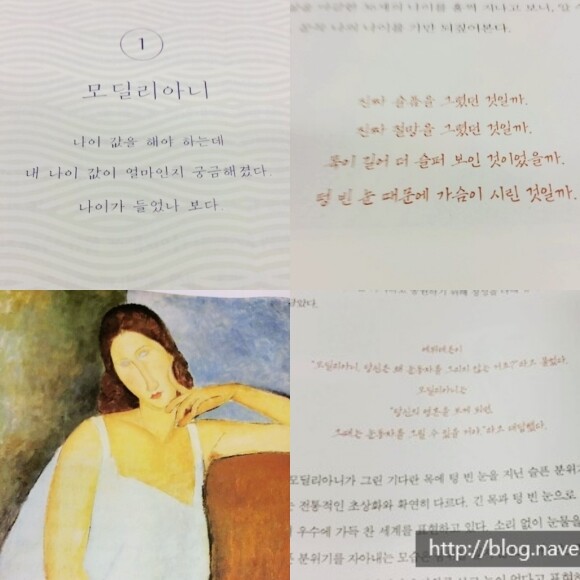 1
모딜리아니
나이 값을 해야 하는데
내 나이 값이 얼마인지 궁금해졌다.
나이가 들었나 보다
나이를 훌쩍 지나고 보니,
문득 나의 나이를 가만 되짚어본다.
진짜 슬픔을 그렸던 것일까.
진짜 절망을 그렸던 것일까.
목이 길어 더 슬퍼 보인 것이었을까.
텅 빈 눈 때문에 가슴이 시린 것일까.
"모딜리아니, 당신은 왜 눈동자를 그리지 않는 거죠?"라고 물었다.
모딜리아니는
"당신의 영혼을 보게 되면,
그때는 눈동자를 그릴 수 있을 거야."라고 대답했다.
모딜리아니가 그린 기다란 목에 텅 빈 눈을 지닌 슬픈 분위
는 전통적인 초상화와 확연히 다르다. 긴 목과 텅 빈 눈으로
우수에 가득 찬 세계를 표현하고 있다. 소리 없이 눈물을
분위기를 자아내는 모습은
http://blog.nave